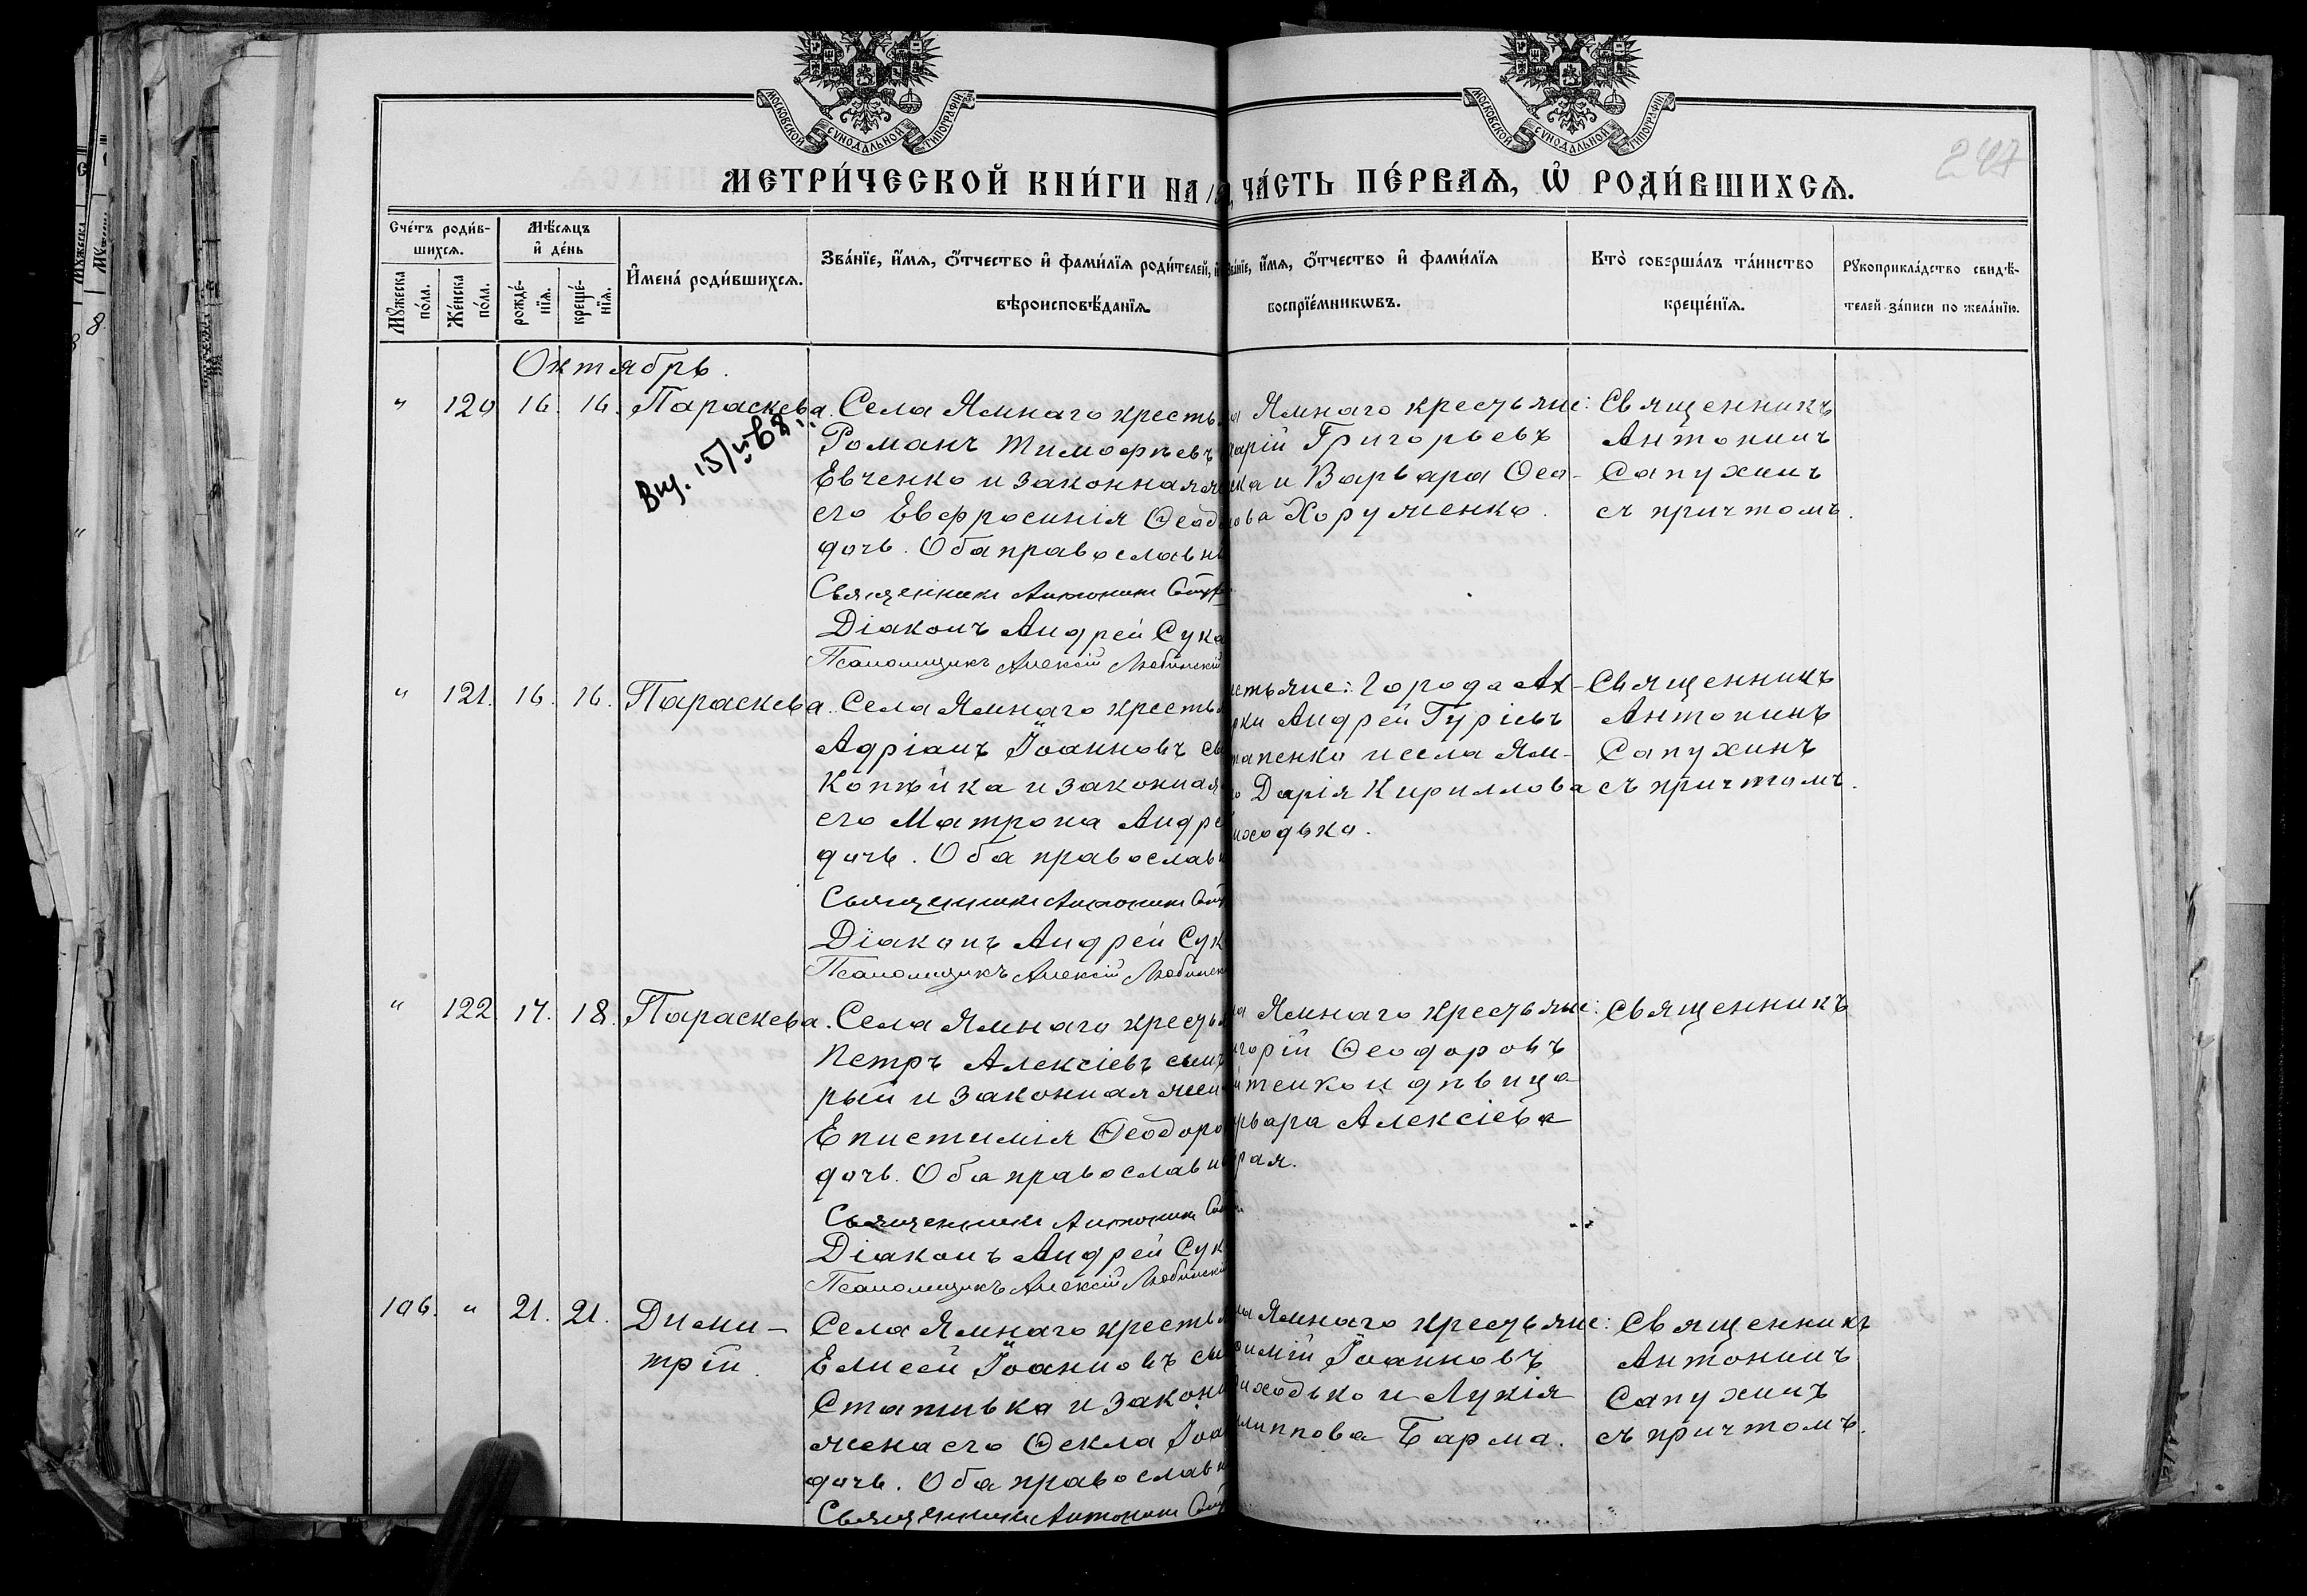 МОСКОВСКОЙ СѴНОДАЛЬНОЙ ТИПОГРАФІИ
МОСКОВСКОЙ СѴНОДАЛЬНОЙ ТИПОГРАФІИ
МЕТРИ́ЧЕСКОЙ КНИ́ГИ НА
ЧА́СТЬ ПЕ́РВАѦ, Ѡ҆ РОДИ́ВШИХСѦ.
247
Сче́тъ роди́в-
шихсѧ.
Мꙋ́жеска по́ла.
Же́нска по́ла.
Мѣ́сѧцъ
и҆ де́нь
рожде́-
нїѧ.
креще́-
нїѧ.
И҆мена̀ роди́вшихсѧ.
Зва́нїе, и҆́мѧ, ѻ҆́тчество и҆ фами́лїѧ роди́телей, и҆
вѣроисповѣ́данїѧ.
Зва́нїе, и҆́мѧ, ѻ҆́тчество и҆ фами́лїѧ
воспрїе́мникѡвъ.
Кто̀ соверша́лъ та́инство
креще́нїѧ.
Рꙋкоприкла́дство свидѣ́-
телей за́писи по жела́нїю.
Октябрь.
" 120 16. 16. Параскева.
Села Ямнаго кресть
Романъ Тимофѣевъ
Евченко и законная
его Евфросинія Ѳеод
дочь. Оба православн
Священникъ Антонинъ
Діаконъ Андрей Сука
Псаломщикъ Алексій Любинскій
Ямнаго крестьяне:
Григорьевъ
и Варвара Ѳео-
Хоруженко.
Священникъ
Антонинъ
Сапухинъ
съ причтомъ.
" 121. 16. 16. Параскева.
Села Ямнаго кресть
Адріанъ Іоанновъ сы
Копѣйка и законная
его Матрона Андре
дочь. Оба православ
Священникъ Антонинъ
Діаконъ Андрей Сук
Псаломщикъ Алексій Любинск
стьяне: Города Ах-
Андрей Гуріевъ
тапенко и села Ям-
Дарія Кириллова
иходько.
Священникъ
Антонинъ
Сапухинъ
съ причтомъ.
" 122 17. 18. Параскева.
Села Ямнаго кресть
Петръ Алексіевъ сынъ
рый и законная жен
Епистимія Ѳеодоро
дочь. Оба православн
Священникъ Антонинъ
Діаконъ Андрей Сук
Псаломщикъ Алексій Любински
Ямнаго крестьяне:
игорій Ѳеодоровъ
тенко и дѣвица
рвара Алексіева
рая.
Священникъ
106. " 21. 21. Дими-
трій.
Села Ямнаго кресть
Елисей Іоанновъ сы
Стативка и законн
жена его Ѳекла Іоа
дочь. Оба православн
Священникъ Антонинъ
Ямнаго крестьяне:
Іоанновъ
иходько и Лукія
липпова Барма.
Священникъ
Антонинъ
Сапухинъ
съ причтомъ.